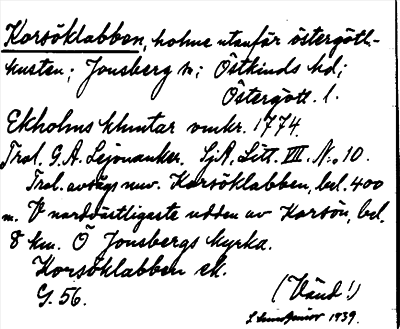 Korsöklabben, holme utanför östergötl.-
kusten; Jonsberg sn; Östkinds hd;
Östergötl. l.
Ekholms khuntar omkr. 1774.
Trol. G. A. Lejonanker. SjA, Litt. VIII. N:o 10.
Trol. avsägs nuv. Korsöklabben, bel. 400
m. V nordöstligaste udden av Korsön, bel.
8 km. Ö Jonsbergs kyrka.
Korsöklabben ek.
G. 56.
(Vänd!)
1939.